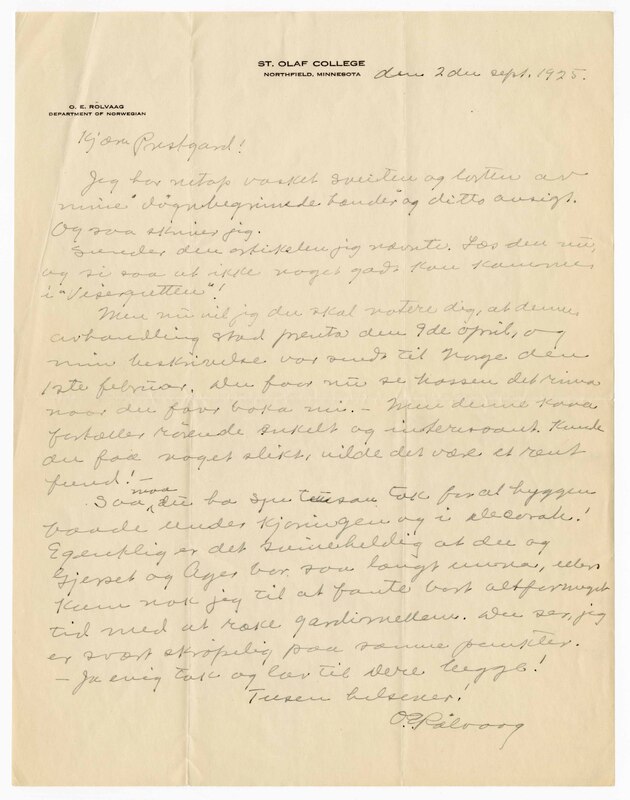 ST. OLAF COLLEGE
NORTHFIELD, MINNESOTA
den 2den sept. 1925.
O. E. RÖLVAAG
DEPARTMENT OF NORWEGIAN
Kjære Prestgard!
Jeg har netop vasket sveitten og lorten av
mine "døgnbegrunede hænder" og ditto ansigt.
Og saa skriver jeg.
Sender den artikelen jeg nævnte. Læs den nu,
og si saa at ikke noget godt kan komme
i "Visergutten"!
Men nu vil jeg du skal notere dig, at denne
avhandling stod prenta den 9de april, og
min beskrivelse var sendt til Norge den
1ste februar. Du faar nu se hossen det rima
naar du faar boka mi. – Men denne kona
fortæller rørende enkelt og interessant. Kunde
du faa noget slikt, vilde det være et rent
fund! –
Saa maa du ha tusan tak for al hyggen
baade under kjøringen og i Decorah!
Egentlig er det svineheldig at du og
Gjerset og Ager bor saa langt unna, ellers
kom nok jeg til at fante bort altfor meget
tid med at ræke gardimellem. Du ser, jeg
er svært skrøpelig paa somme punkter.
– Ja evig tak og lov til Dere begge!
Tusen hilsener!
O. E. Rølvaag